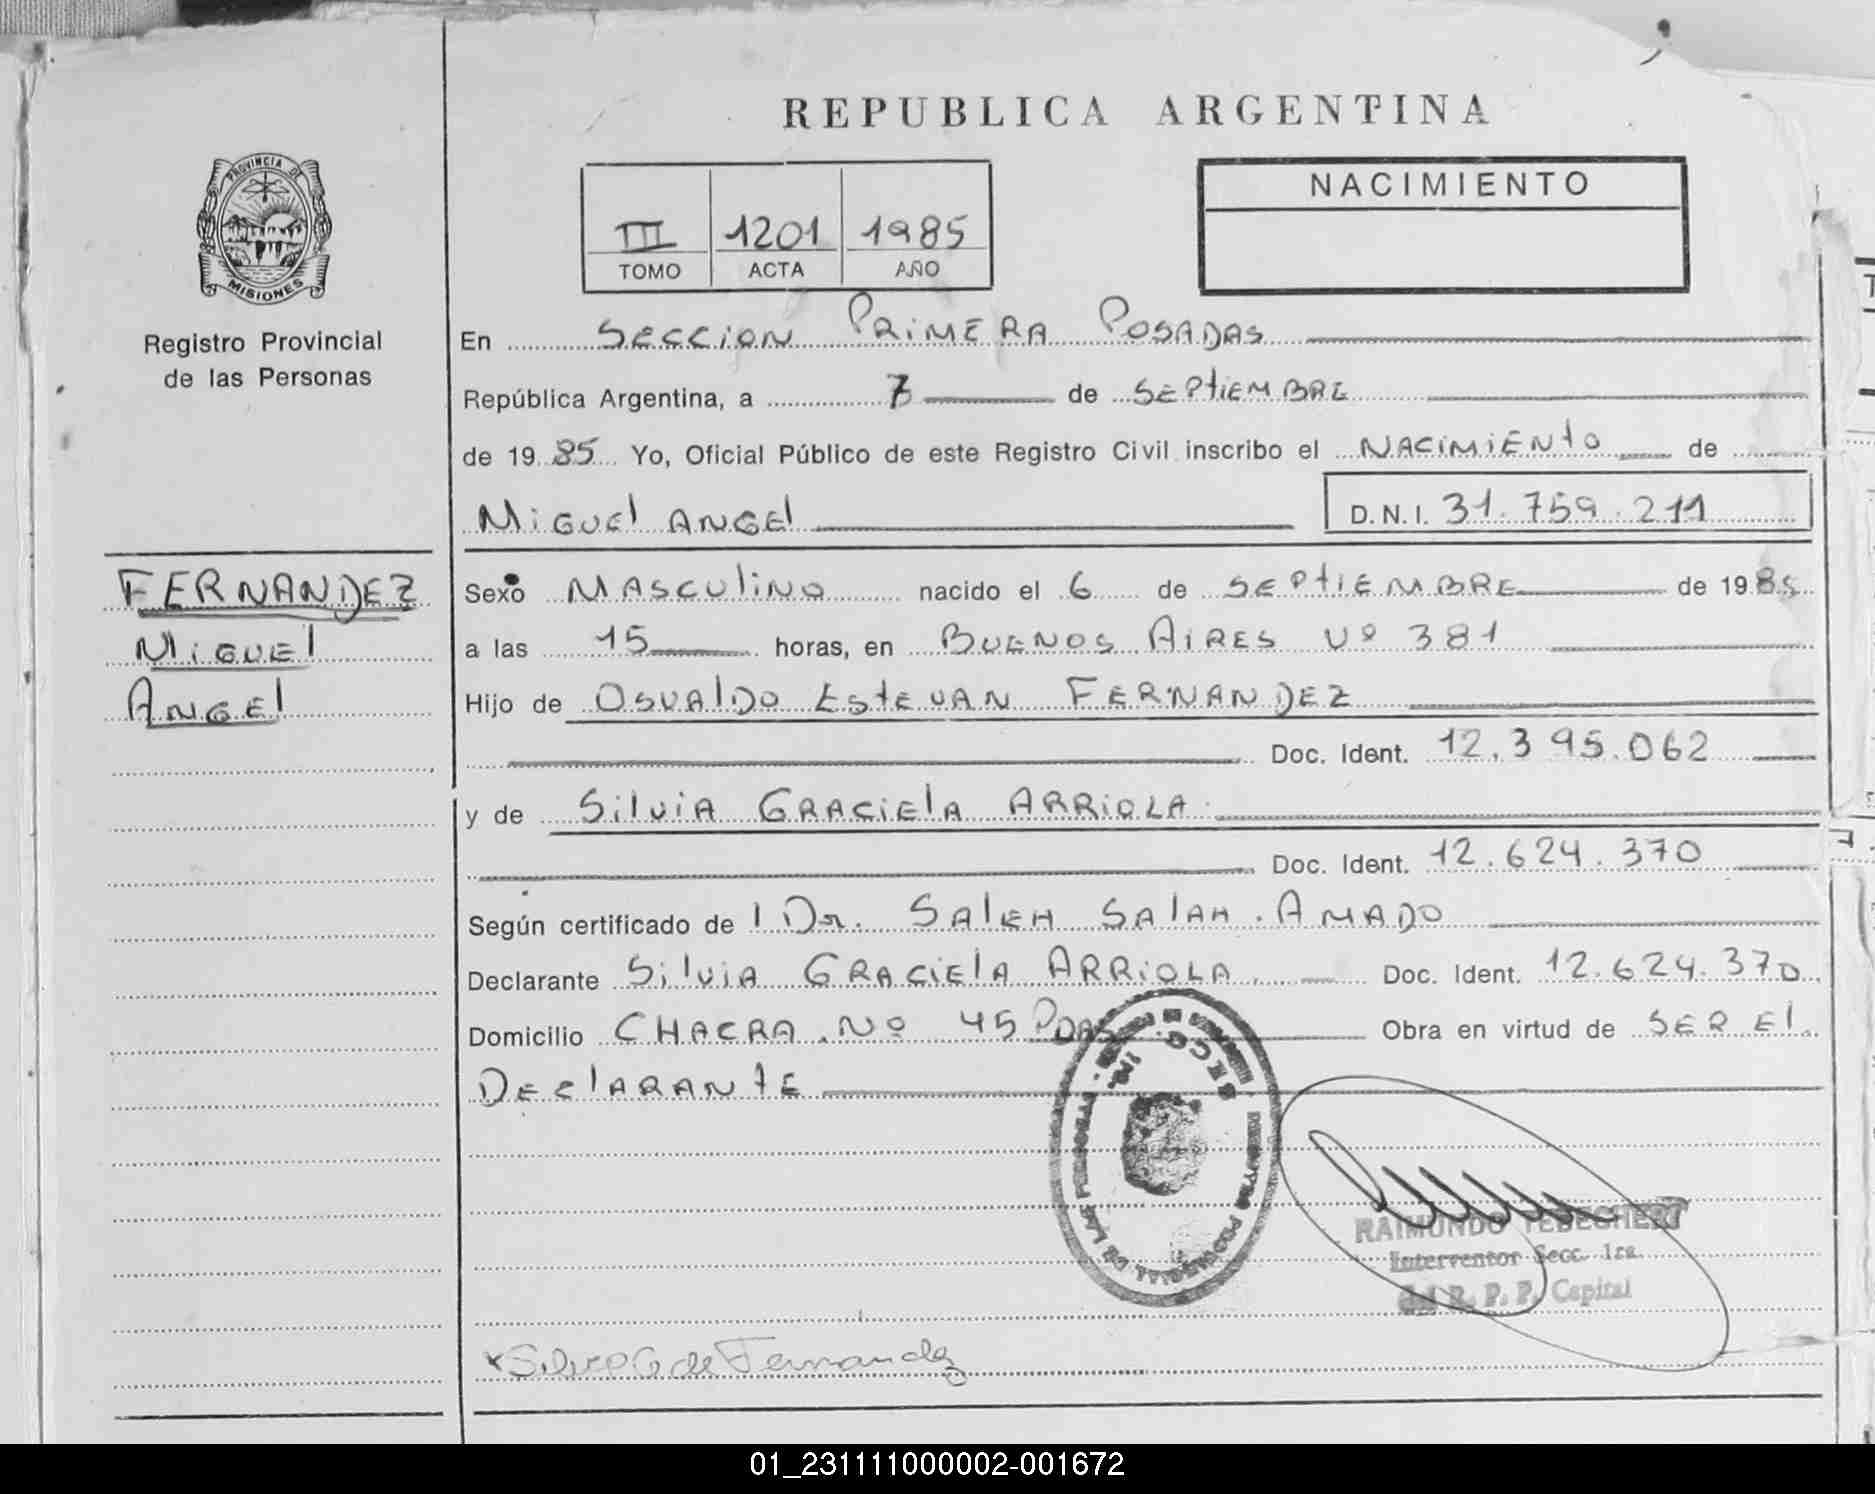 REPUBLICA ARGENTINA
PROVINCIA DE
MISIONES
Registro Provincial
de las Personas
III 1201 1985
TOMO ACTA AÑO
NACIMIENTO
En SECCION PRIMERA POSADAS
República Argentina, a 7 de SEPTIEMBRE
de 1985 Yo, Oficial Público de este Registro Civil inscribo el NACIMIENTO de
MIGUEL ANGEL D.N.I. 31.759.211
FERNANDEZ
MIGUEL
ANGEL
Sexo MASCULINO nacido el 6 de SEPTIEMBRE de 1985
a las 15 horas, en BUENOS AIRES Nº 381
Hijo de OSVALDO ESTEVAN FERNANDEZ
Doc. Ident. 12.395.062
y de SILVIA GRACIELA ARRIOLA
Doc. Ident. 12.624.370
Según certificado de l Dr. SALEH SALAH. AMADO
Declarante SILVIA GRACIELA ARRIOLA. Doc. Ident. 12.624.370
Domicilio CHACRA Nº 45 PDAS. Obra en virtud de SER EL
DECLARANTE
SECC.
1RA.
PROVINCIAL DE LAS PERSONAS
RAIMUNDO
Interventor Secc. 1ra.
del R. P. P. Capital
G de Fernandez
01_231111000002-001672